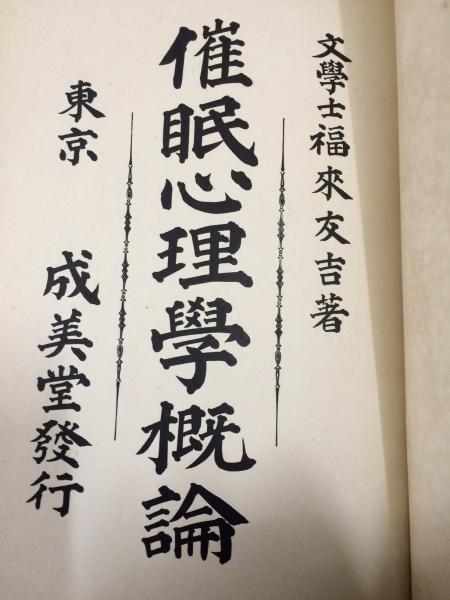 文學士福來友吉著
催眠心理學概論
東京 成美堂發行